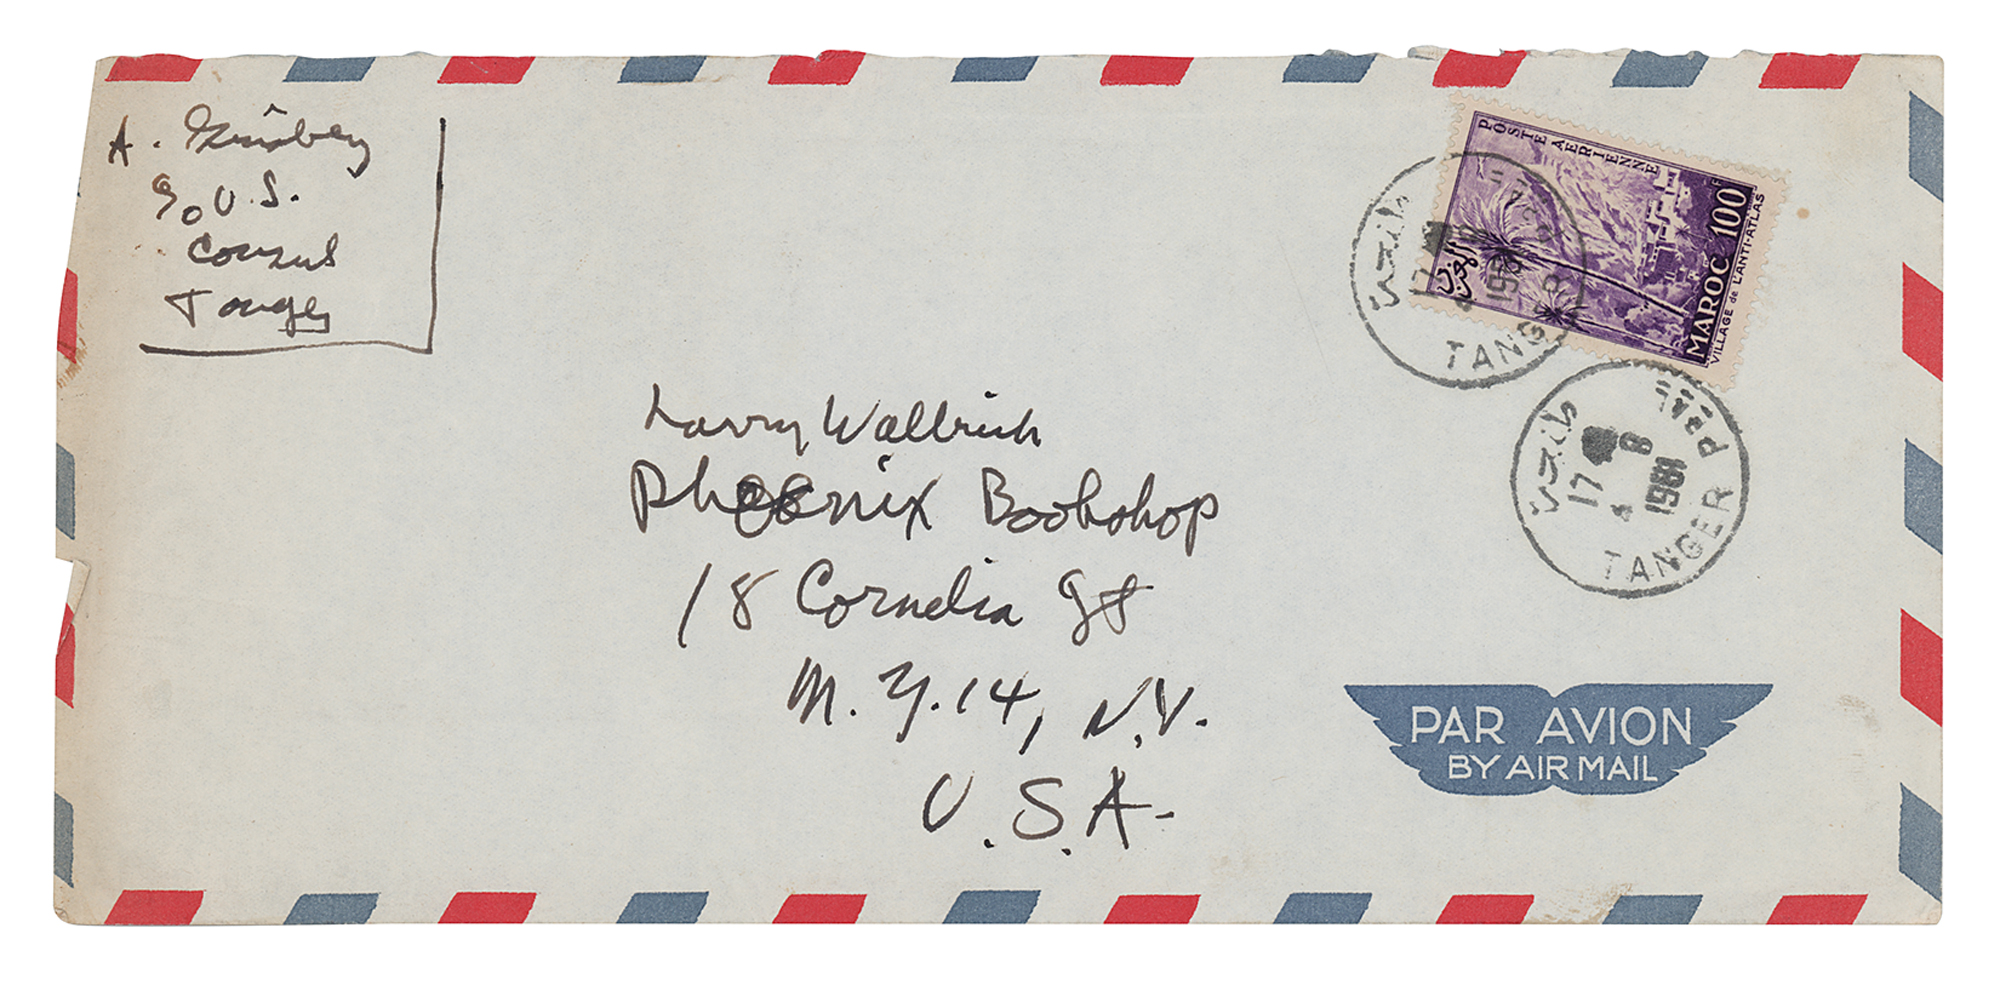 A. Ginsberg
c/o U.S.
Consul
Tanger
POSTE AERIENNE
المغرب
MAROC 100F
VILLAGE de L'ANTI-ATLAS
طنجة
TANGER
طنجة
17
4 8
1961
TANGER PPAL
Larry Wallrich
Phoenix Bookshop
18 Cornelia St
N.Y. 14, N.Y.
U.S.A.
PAR AVION
BY AIR MAIL